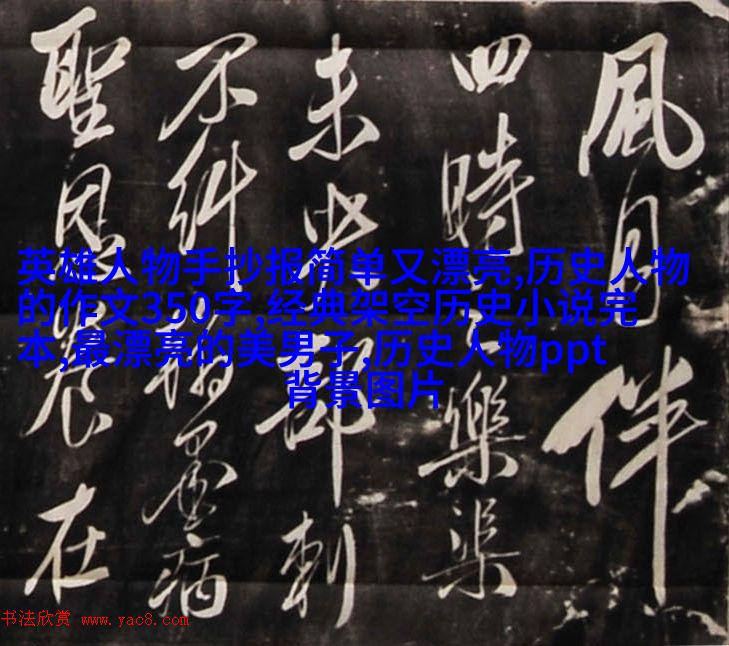 風月伴
四時 樂
未 刺
不 病
聖恩 在
英雄人物手抄报简单又漂亮,历史人物
的作文350字,经典架空历史小说完
本,最漂亮的美男子,历史人物ppt
背景图片
书法欣赏 www.yac8.com